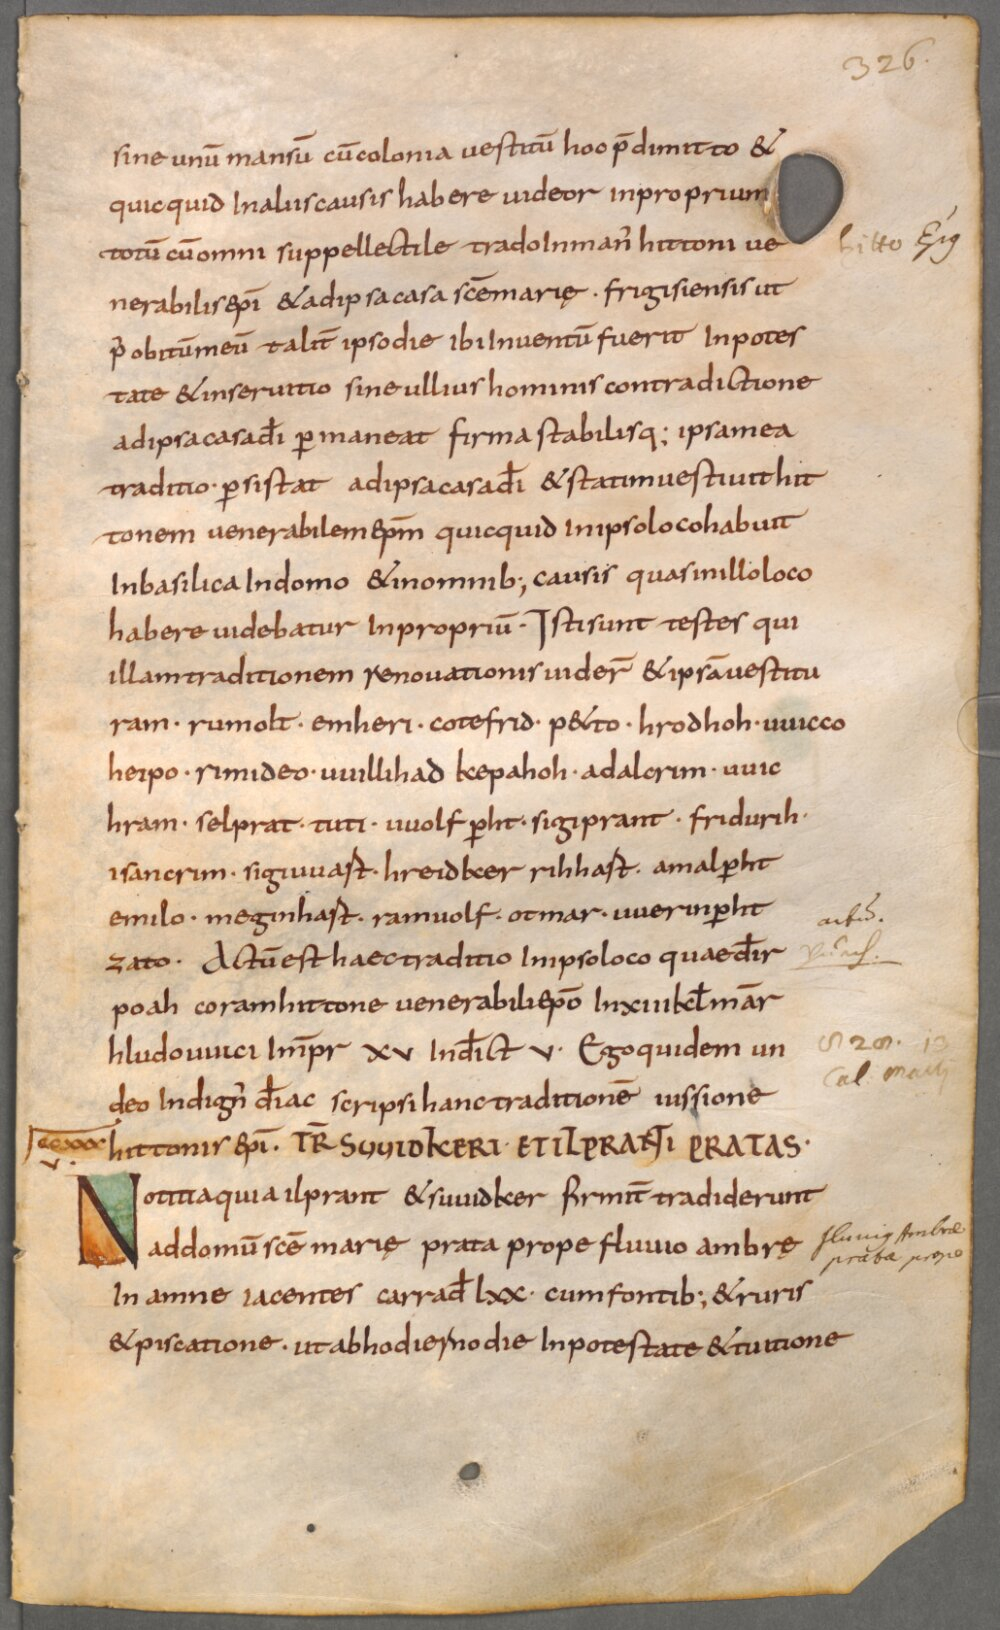 326.
sine unū mansū cū colonia vestitū hoc p̄dimitto &
quicquid In aliis causis habere uideor inproprium
totū cū omni suppellectile trado Inman̄ hittoni ve
hitto Ep̄s
nerabilis ep̄i & ad ipsa casa scē marię . frigisiensis ut
p̄ obitū meū talit̄ ipso die ibi Inventū fuerit In potes
tate & in seruitio sine ullius hominis contradictione
ad ipsa casa dī p̱maneat firma stabilisq; ipsa mea
traditio p̱sistat ad ipsa casa dī & statim vestiuit hit
tonem venerabilem ep̄m quicquid in ipso loco habuit
In basilica In domo & in omnib; causis quas in illo loco
habere uidebatur In propriū . Isti sunt testes qui
illam traditionem renouationis uider̄ & ipsā vestitu
ram . rumolt . emheri . cotefrid . p&to . hrodhoh . uuicco
heipo . rimideo . uuillihad kepahoh . adalcrim . uuic
hram . selprat . tuti . uuolfp̱ht . sigiprant . fridurih .
isancrim . sigiuuast . hreidker rihhast . amalp̱ht
emilo . meginhast . ramuolf . otmar . uuerinp̱ht
zato . Actū est haec traditio In ipso loco quae dr̄
actū.
poah coram hittone venerabili ep̄o In xiii kl̄ mār
hludouuici Imp̄r xv Indict̄ v . Ego quidem un
828. 13
Cal. Martii
deo Indign̄ diac̄ scripsi hanc traditionē iussione
ccxxx
v.
hittonis ep̄i . TR̄ SUUIDKERI ET ILPRANTI PRATAS .
Notitia qui ailprant & suuidker firmit̄ tradiderunt
ad domū scē marię prata prope fluuio ambrę
fluuiꝯ Ambræ
prata prope
In amne iacentes carrad̄ lxx . cum fontib; & ruris
& piscatione . ut ab hodierno die In potestate & tuitione